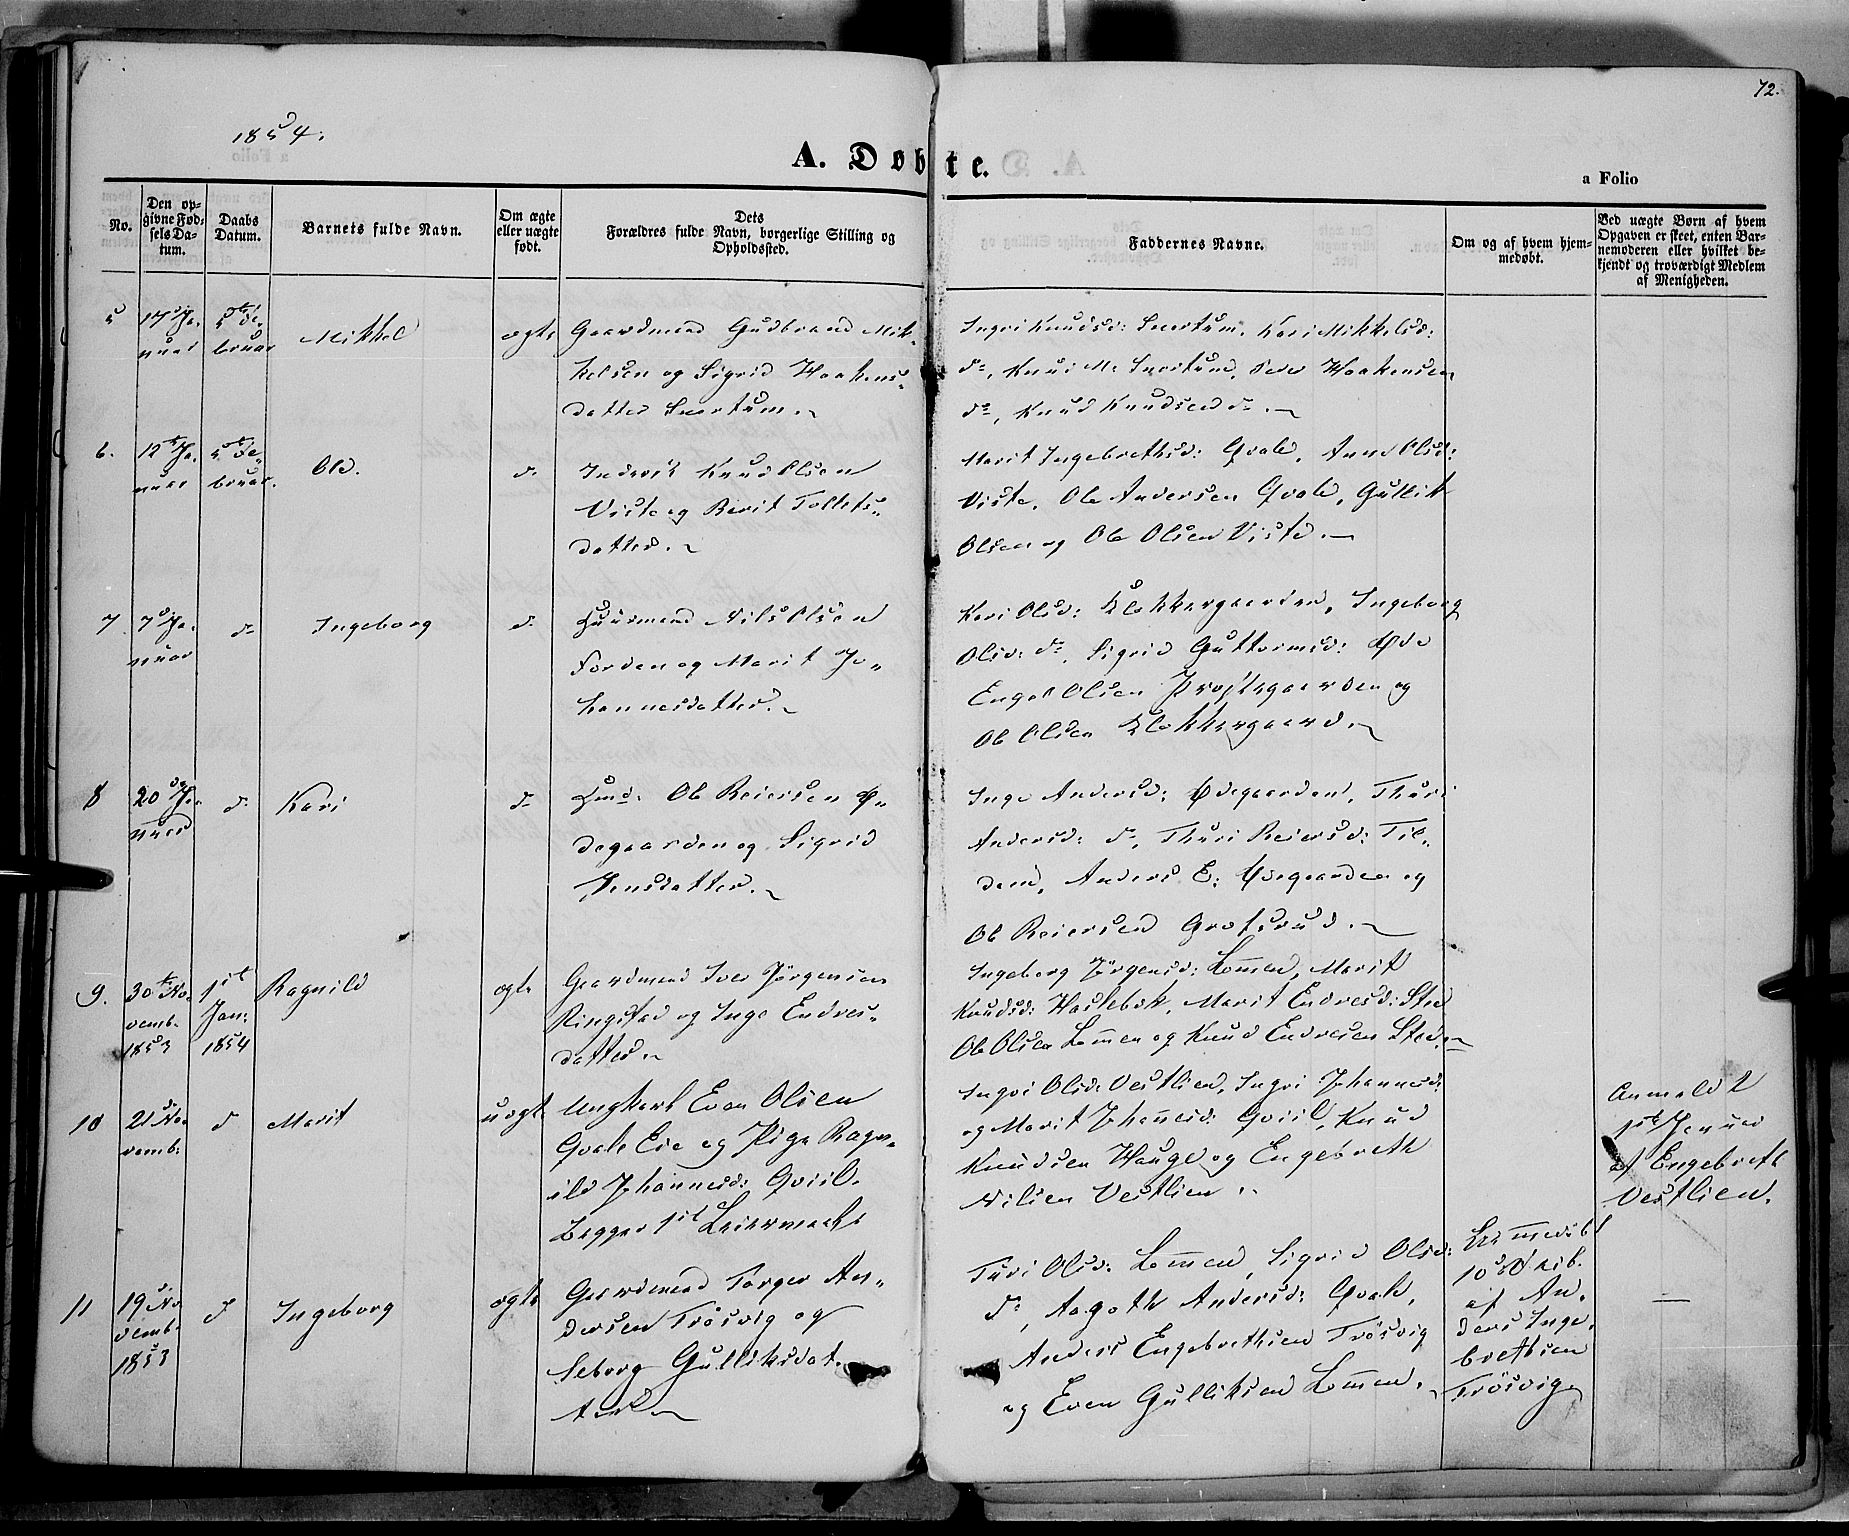 1854.
72.
A. Døbte.
a Folio
No.
Den op-
givne Fød-
sels Da-
tum.
Daabs
Datum.
Barnets fulde Navn.
Om ægte
eller uægte
født.
Dets
Forældres fulde Navn, borgerlige Stilling og
Opholdssted.
Faddernes Navne.
Om og af hvem hjem-
medøbt.
Ved uægte Børn af hvem
Opgaven er skeet, enten Bar-
nemoderen eller hvilket be-
kjendt og troværdigt Medlem
af Menigheden.
5 17de Ja-
nuar
5te Fe-
bruar
Mikkel
ægte
Gaardmand Gudbrand Mik-
kelsen og Sigrid Haakens-
datter
Ingri Knudsd: Kari Mikkelsd:
do, Knud M. Peder Haakensen
do, Knud Knudsen do.
6. 12te Ja-
nuar
5te Fe-
bruar.
Ole.
do
Inderst Knud Olsen
Viste og Berit Tollefs-
datter.
Marit Ingebrethsd: Qvale, Anne Olsd:
Viste, Ole Andersen Qvale, Gullik
Olsen og Ole Olsen Viste.
7. 7de Ja-
nuar
do
Ingeborg
do
Huusmand Nils Olsen
Forden og Marit Jo-
hannesdatter.
Kari Olsd: Klokkergaarden, Ingeborg
Olsd: do, Sigrid Guttormsd: Øde
Engel Olsen Præstegaarden og
Ole Olsen Klokkergaard.
8 20de Ja-
nuar
do
Kari
do
Hmd: Ole Reiersen Ø-
degaarden og Sigrid
Jensdatter.
Inge Andersd: Ødegaarden, Thuri
Andersd: do, Thuri Reiersd: Til-
dem, Anders E: Ødegaarden og
Ole Reiersen Grofsrud.
9. 30te No-
vemb.
1853
1ste
Jan:
1854
Ragnild
ægte
Gaardmand Iver Jørgensen
Ringstad og Inge Endres-
datter.
Ingeborg Jørgensd: Lomen, Marit
Knudsd: Haslebek, Marit Endresd: Sted
Ole Olsen Lomen og Knud Endresen Sted.
10 21de No-
vemb:
do
Marit
uægte
Ungkarl Even Olsen
Qvale Eie og Pige Ragn-
ild Johannesd: Qviil.
Begges 1ste Leiermaal.
Ingri Olsd: Vestlien, Ingri Johannesd:
og Marit Johannesd: Qviil, Knud
Knudsen Hauge og Engebreth
Nilsen Vestlien.
Anmeldt
1ste Januar
af Engebreth
Vestlien.
11 19de No-
vemb.
1853
do
Ingeborg
ægte
Gaardmand Torger An-
dersen Trøsvig og
Seborg Gulliksdat-
ter.
Turi Olsd: Lomen, Sigrid Olsd:
do, Aagoth Andersd: Qvale,
Anders Engebrethsen Trøsvig
og Even Gulliksen Lomen.
Hjemmedøbt
10de
af An-
ders Inge-
brethsen
Trøsvig.
—